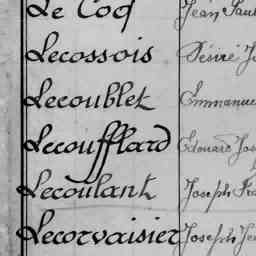 Le Coq Jean
Lecossois Désiré
Lecoublet Emmanuel
Lecoufflard Edouard
Lecoulant Joseph
Lecorvaisier Joseph